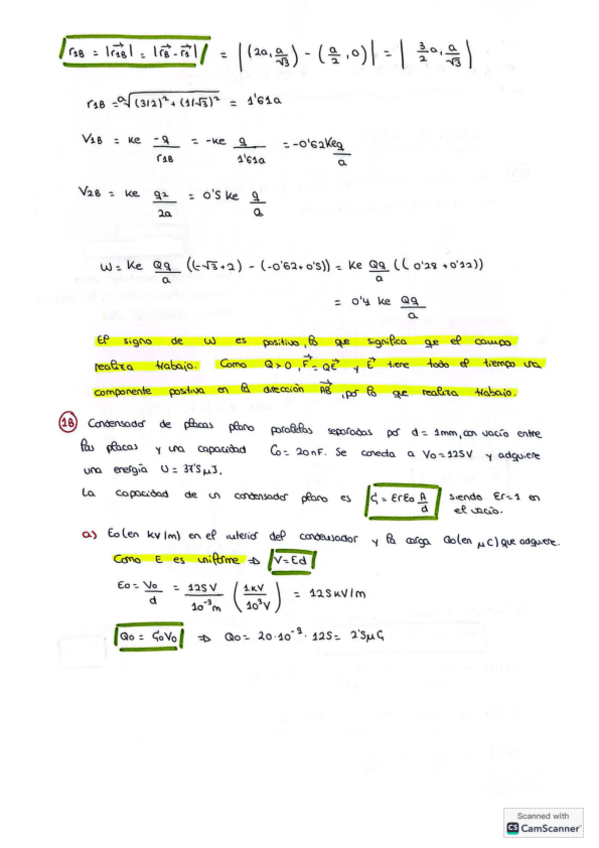 r1B = |r1B| = |rB - r1| = |(2a, a/√3) - (a/2, 0)| = | 3/2 a, a/√3 |
r1B = a√(3/2)² + (1/√3)² = 1'61a
V1B = Ke -q/r1B = -Ke q/1'61a = -0'62 Keq/a
V2B = Ke q2/2a = 0'5 Ke q/a
W = Ke Qq/a ((-√3+2) - (-0'62+0'5)) = Ke Qq/a (( 0'28 + 0'12))
= 0'4 Ke Qq/a
El signo de W es positivo, lo que significa que el campo
realiza trabajo. Como Q>0, F = QE y E tiene todo el tiempo una
componente positiva en la dirección AB, por lo que realiza trabajo.
18 Condensador de placas plano paralelas separadas por d = 1mm, con vacío entre
las placas y una capacidad C0 = 20nF. Se conecta a V0 = 125V y adquiere
una energía U = 37'5 μJ.
La capacidad de un condensador plano es C = ErE0 A/d siendo Er = 1 en
el vacío.
a) E0 (en kV/m) en el interior del condensador y la carga Q0 (en μC) que adquiere.
Como E es uniforme ⇒ V = Ed
E0 = V0/d = 125V/10⁻³m (1kV/10³V) = 125kV/m
Q0 = C0V0 ⇒ Q0 = 20·10⁻⁹·125 = 2'5μC
Scanned with
CS CamScanner